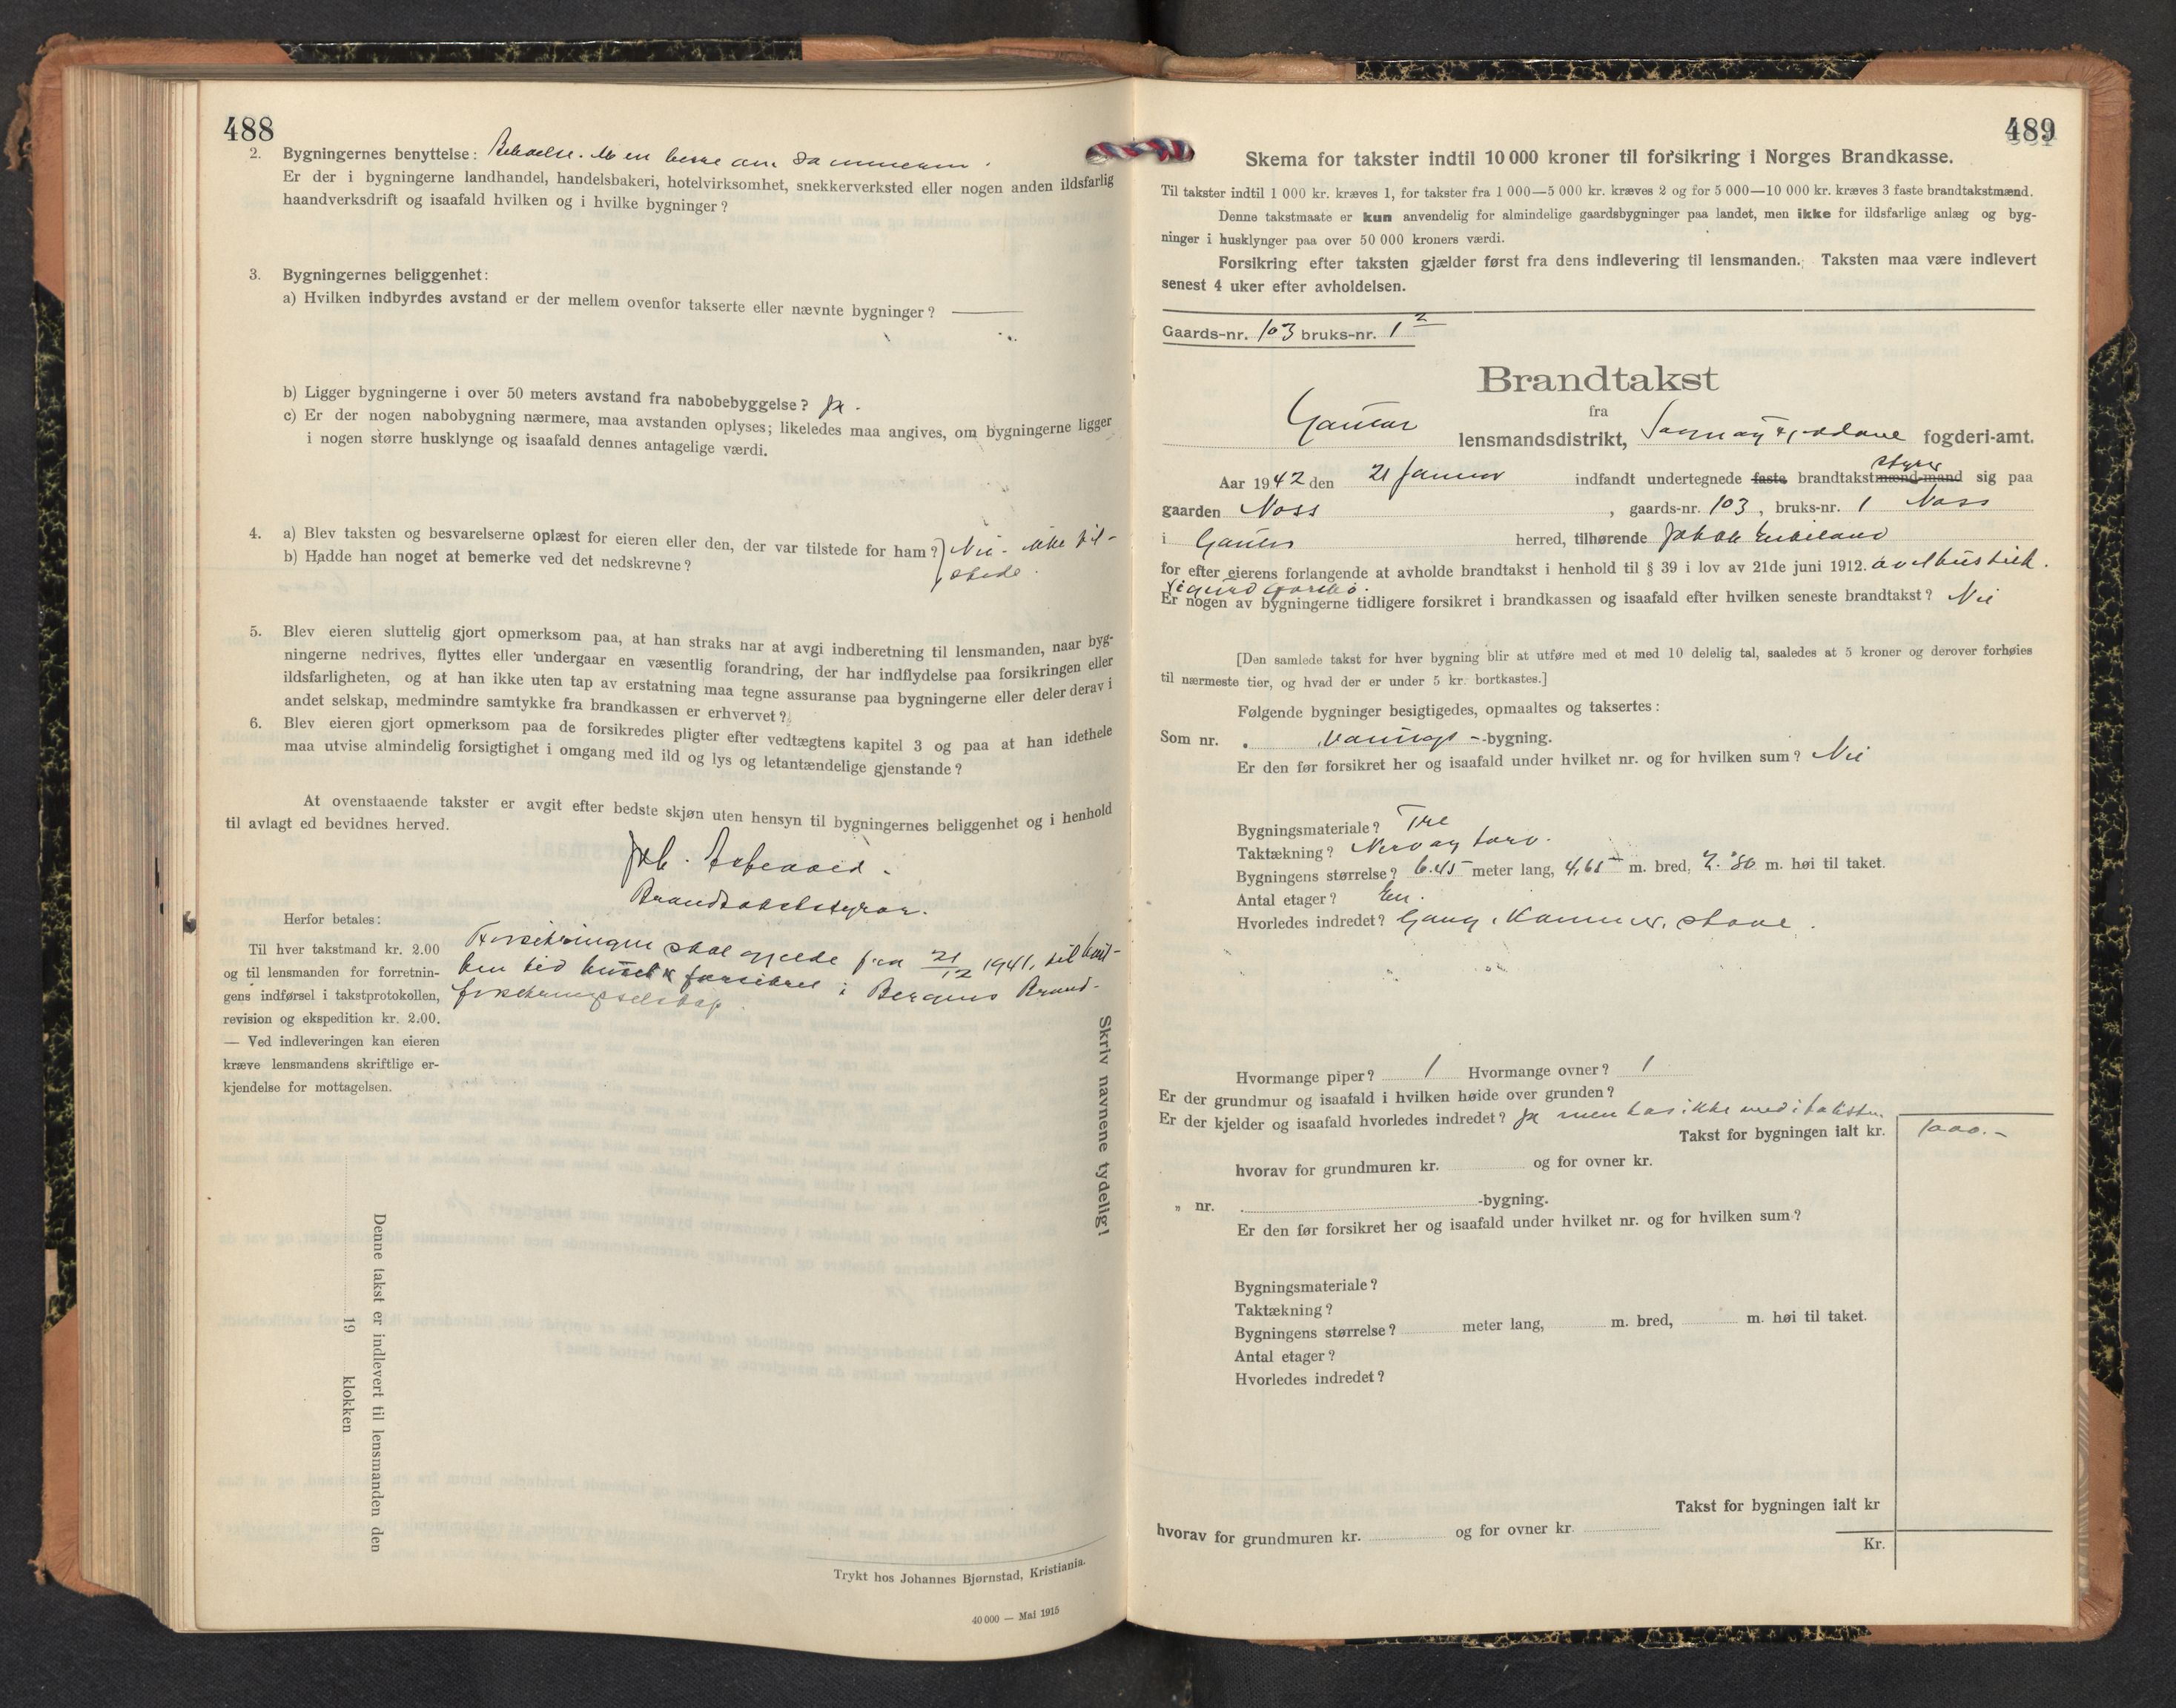 488
2. Bygningernes benyttelse: Beboelse. Men berre om sommeren.
Er der i bygningerne landhandel, handelsbakeri, hotelvirksomhet, snekkerverksted eller nogen anden ildsfarlig
haandverksdrift og isaafald hvilken og i hvilke bygninger?
3. Bygningernes beliggenhet:
a) Hvilken indbyrdes avstand er der mellem ovenfor takserte eller nævnte bygninger? —
b) Ligger bygningerne i over 50 meters avstand fra nabobebyggelse? Ja.
c) Er der nogen nabobygning nærmere, maa avstanden oplyses; likeledes maa angives, om bygningerne ligger
i nogen større husklynge og isaafald dennes antagelige værdi.
4. a) Blev taksten og besvarelserne oplæst for eieren eller den, der var tilstede for ham? } Nei - ikke til-
b) Hadde han noget at bemerke ved det nedskrevne? stede.
5. Blev eieren sluttelig gjort opmerksom paa, at han straks har at avgi indberetning til lensmanden, naar byg-
ningerne nedrives, flyttes eller undergaar en væsentlig forandring, der har indflydelse paa forsikringen eller
ildsfarligheten, og at han ikke uten tap av erstatning maa tegne assuranse paa bygningerne eller deler derav i
andet selskap, medmindre samtykke fra brandkassen er erhvervet?
6. Blev eieren gjort opmerksom paa de forsikredes pligter efter vedtægtens kapitel 3 og paa at han idethele
maa utvise almindelig forsigtighet i omgang med ild og lys og letantændelige gjenstande?
At ovenstaaende takster er avgit efter bedste skjøn uten hensyn til bygningernes beliggenhet og i henhold
til avlagt ed bevidnes herved.
Jak.
Brandtakststyrar.
Herfor betales:
Til hver takstmand kr. 2.00
og til lensmanden for forretnin-
gens indførsel i takstprotokollen,
revision og ekspedition kr. 2.00.
— Ved indleveringen kan eieren
kræve lensmandens skriftlige er-
kjendelse for mottagelsen.
Forsikringen skal gjelde fra 21/12 1941, til
ken tid huset er forsikret i Bergens Brand-
forsikringsselskap.
Skriv navnene tydelig!
Denne takst er indlevert til lensmanden den
19 klokken
Trykt hos Johannes Bjørnstad, Kristiania.
40 000 — Mai 1915
489
Skema for takster indtil 10 000 kroner til forsikring i Norges Brandkasse.
Til takster indtil 1 000 kr. kræves 1, for takster fra 1 000—5 000 kr. kræves 2 og for 5 000—10 000 kr. kræves 3 faste brandtakstmænd.
Denne takstmaate er kun anvendelig for almindelige gaardsbygninger paa landet, men ikke for ildsfarlige anlæg og byg-
ninger i husklynger paa over 50 000 kroners værdi.
Forsikring efter taksten gjælder først fra dens indlevering til lensmanden. Taksten maa være indlevert
senest 4 uker efter avholdelsen.
Gaards-nr. 103 bruks-nr. 1 2
Brandtakst
fra
Gaular lensmandsdistrikt, Sogn og Fjordane fogderi-amt.
Aar 1942 den 21 Januar indfandt undertegnede faste brandtakstmænd-mand styrer sig paa
gaarden Noss, gaards-nr. 103, bruks-nr. 1 Noss
i Gaular herred, tilhørende Jakob
for efter eierens forlangende at avholde brandtakst i henhold til § 39 i lov av 21de juni 1912.
Sigurd
Er nogen av bygningerne tidligere forsikret i brandkassen og isaafald efter hvilken seneste brandtakst? Nei
[Den samlede takst for hver bygning blir at utføre med et med 10 delelig tal, saaledes at 5 kroner og derover forhøies
til nærmeste tier, og hvad der er under 5 kr. bortkastes.]
Følgende bygninger besigtigedes, opmaaltes og taksertes:
Som nr. Vaanings-bygning.
Er den før forsikret her og isaafald under hvilket nr. og for hvilken sum? Nei
Bygningsmateriale? Tre
Taktækning? Never og torv.
Bygningens størrelse? 6.45 meter lang, 4,65 m. bred, 2.80 m. høi til taket.
Antal etager? En.
Hvorledes indredet? Gang, Kammer, stove.
Hvormange piper? 1 Hvormange ovner? 1
Er der grundmur og isaafald i hvilken høide over grunden?
Er der kjelder og isaafald hvorledes indredet? Ja men tas ikke med i taksten.
Takst for bygningen ialt kr. 1000.-
hvorav for grundmuren kr. og for ovner kr.
" nr. -bygning.
Er den før forsikret her og isaafald under hvilket nr. og for hvilken sum?
Bygningsmateriale?
Taktækning?
Bygningens størrelse? meter lang, m. bred, m. høi til taket.
Antal etager?
Hvorledes indredet?
Takst for bygningen ialt kr
hvorav for grundmuren kr. og for ovner kr.
Kr.